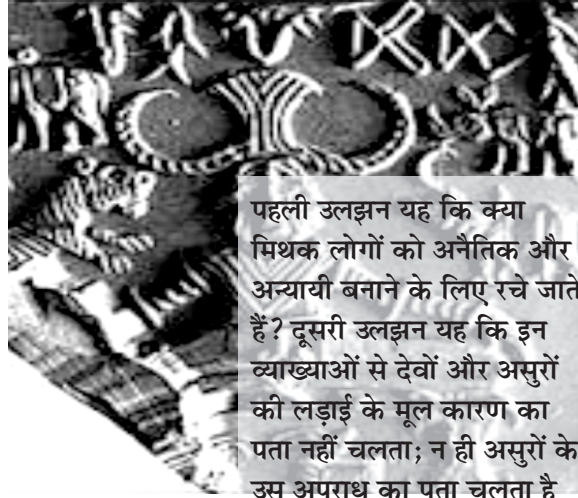 पहली उलझन यह कि क्या
मिथक लोगों को अनैतिक और
अन्यायी बनाने के लिए रचे जाते
हैं? दूसरी उलझन यह कि इन
व्याख्याओं से देवों और असुरों
की लड़ाई के मूल कारण का
पता नहीं चलता; न ही असुरों के
उस अपराध का पता चलता है